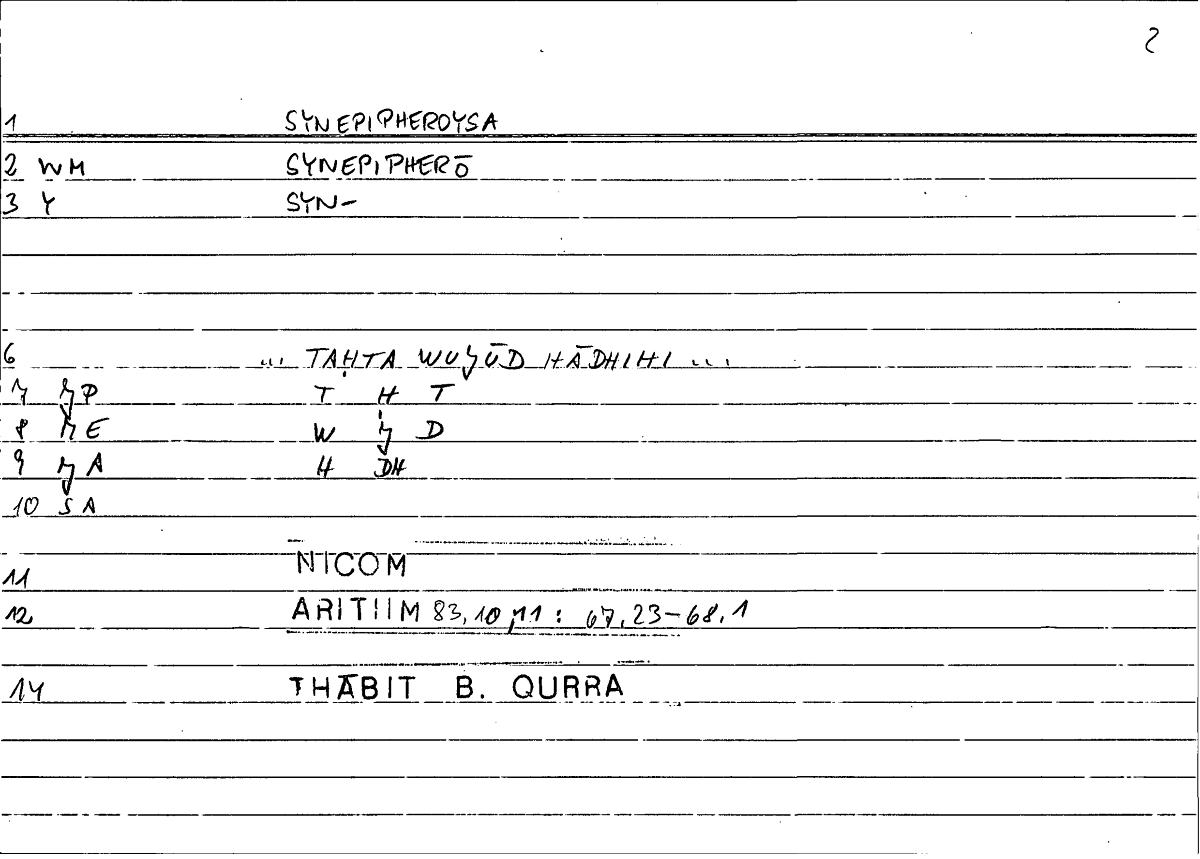 2
1 SYNEPIPHEROYSA
2 WM SYNEPIPHERŌ
3 Y SYN-
6 ... TAḤTA WUJŪD HĀDHIHI ...
7 JP T Ḥ T
8 JE W J D
9 JA H DH
10 SA
11 NICOM
12 ARITIIM 83,10,11 : 67,23-68,1
14 THĀBIT B. QURRA